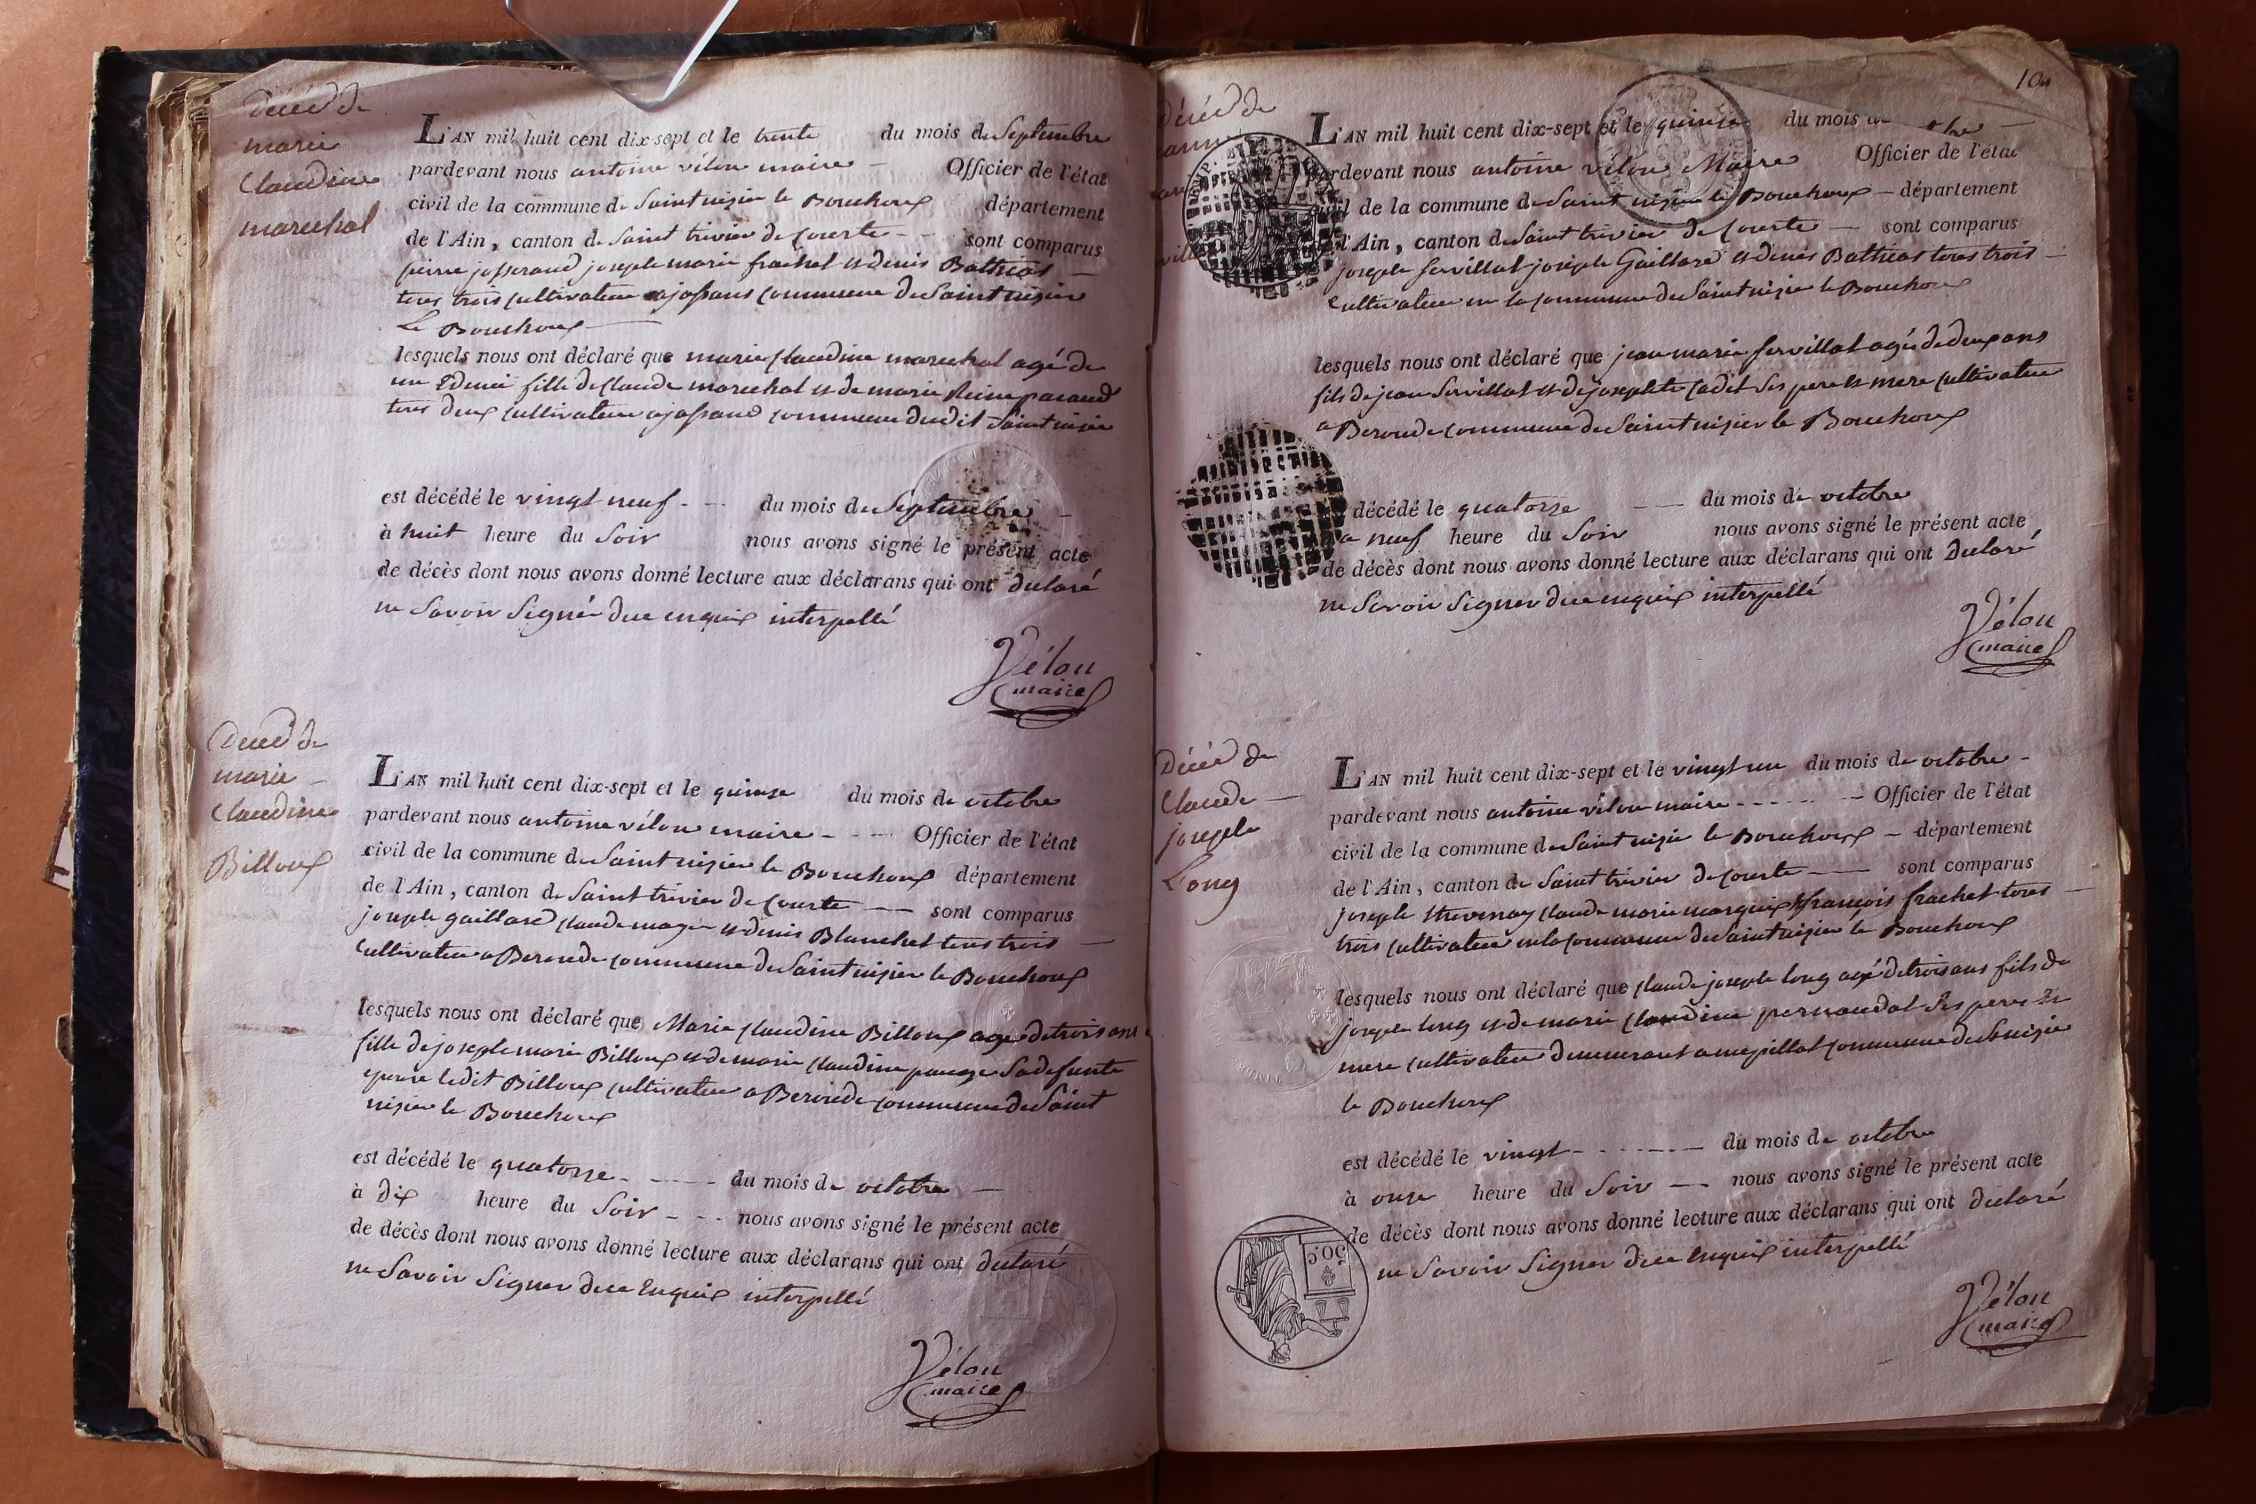 Décéd de
marie
Claudine
marechal
L'AN mil huit cent dix-sept et le trente du mois de Septembre
pardevant nous antoine vélon maire Officier de l'état
civil de la commune de Saint nizier le Bouchoux département
de l'Ain, canton de Saint trivier de Courte sont comparus
pierre josserand joseph marie frachet et denis Bathias
tous trois cultivateur a jassans commune de Saint nizier
le Bouchoux
lesquels nous ont déclaré que marie Claudine marechal agé de
un Demi fille de Claude marechal et de marie Reine pacaud
tous deux cultivateur a jassans commune dudit Saint nizier
est décédé le vingt neuf du mois de Septembre
à huit heure du Soir nous avons signé le présent acte
de décès dont nous avons donné lecture aux déclarans qui ont declaré
ne Savoir Signé due enquis interpellé
Vélon
maire
Décéd de
marie
Claudine
Billoux
L'AN mil huit cent dix-sept et le quinze du mois de octobre
pardevant nous antoine vélon maire Officier de l'état
civil de la commune de Saint nizier le Bouchoux département
de l'Ain, canton de Saint trivier de Courte sont comparus
joseph gaillard Claude magin et denis Blanchet tous trois
cultivateur a Beroude commune de Saint nizier le Bouchoux
lesquels nous ont déclaré que Marie Claudine Billoux agée de trois ans
fille de joseph marie Billoux et de marie Claudine Sa defunte
ledit Billoux cultivateur a Beroude commune de Saint
nizier le Bouchoux
est décédé le quatorze du mois de octobre
à dix heure du Soir nous avons signé le présent acte
de décès dont nous avons donné lecture aux déclarans qui ont declaré
ne Savoir Signer due enquis interpellé
Vélon
maire
104
Décéd de
L'AN mil huit cent dix-sept et le quinze du mois
pardevant nous antoine vélon Maire Officier de l'état
civil de la commune de Saint nizier le Bouchoux département
de l'Ain, canton de Saint trivier de Courte sont comparus
joseph Servillat joseph Gaillard et denis Bathias tous trois
cultivateur en la commune de Saint nizier le Bouchoux
lesquels nous ont déclaré que jean marie Servillat agé de deux ans
fils de jean Servillat et de josephte Cadet Ses pere et mere cultivateur
a Beroude commune de Saint nizier le Bouchoux
décédé le quatorze du mois de octobre
a neuf heure du Soir nous avons signé le présent acte
de décès dont nous avons donné lecture aux déclarans qui ont declaré
ne Savoir Signer due enquis interpellé
Vélon
maire
Décéd de
Claude
joseph
Long
L'AN mil huit cent dix-sept et le vingt un du mois de octobre
pardevant nous antoine vélon maire Officier de l'état
civil de la commune de Saint nizier le Bouchoux département
de l'Ain, canton de Saint trivier de Courte sont comparus
joseph thevenay Claude marie marquis françois frachet tous
trois cultivateur en la commune de Saint nizier le Bouchoux
lesquels nous ont déclaré que Claude joseph long agé de trois ans fils de
joseph long et de marie Claudine pernaudat Ses pere Et
mere cultivateur demeurant a mepillat commune de St nizier
le Bouchoux
est décédé le vingt du mois de octobre
à onze heure du Soir nous avons signé le présent acte
de décès dont nous avons donné lecture aux déclarans qui ont declaré
ne Savoir Signer due enquis interpellé
50 C
Vélon
maire